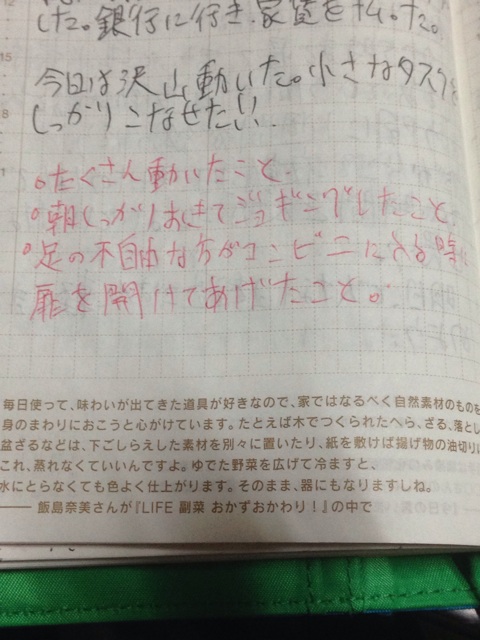 12
した。銀行に行き、家賃を払った。
15
今日は沢山動いた。小さなタスクを
18
しっかりこなせたい!!
。たくさん動いたこと。
。朝しっかりおきてジョギングしたこと。
。足の不自由な方がコンビニに入る時に
扉を開けてあげたこと。
毎日使って、味わいが出てきた道具が好きなので、家ではなるべく自然素材のものを
身のまわりにおこうと心がけています。たとえば木でつくられたへら、ざる、落とし
盆ざるなどは、下ごしらえした素材を別々に置いたり、紙を敷けば揚げ物の油切りに
これ、蒸れなくていいんですよ。ゆでた野菜を広げて冷ますと、
水にとらなくても色よく仕上がります。そのまま、器にもなりますしね。
―― 飯島奈美さんが『LIFE 副菜 おかずおかわり!』の中で